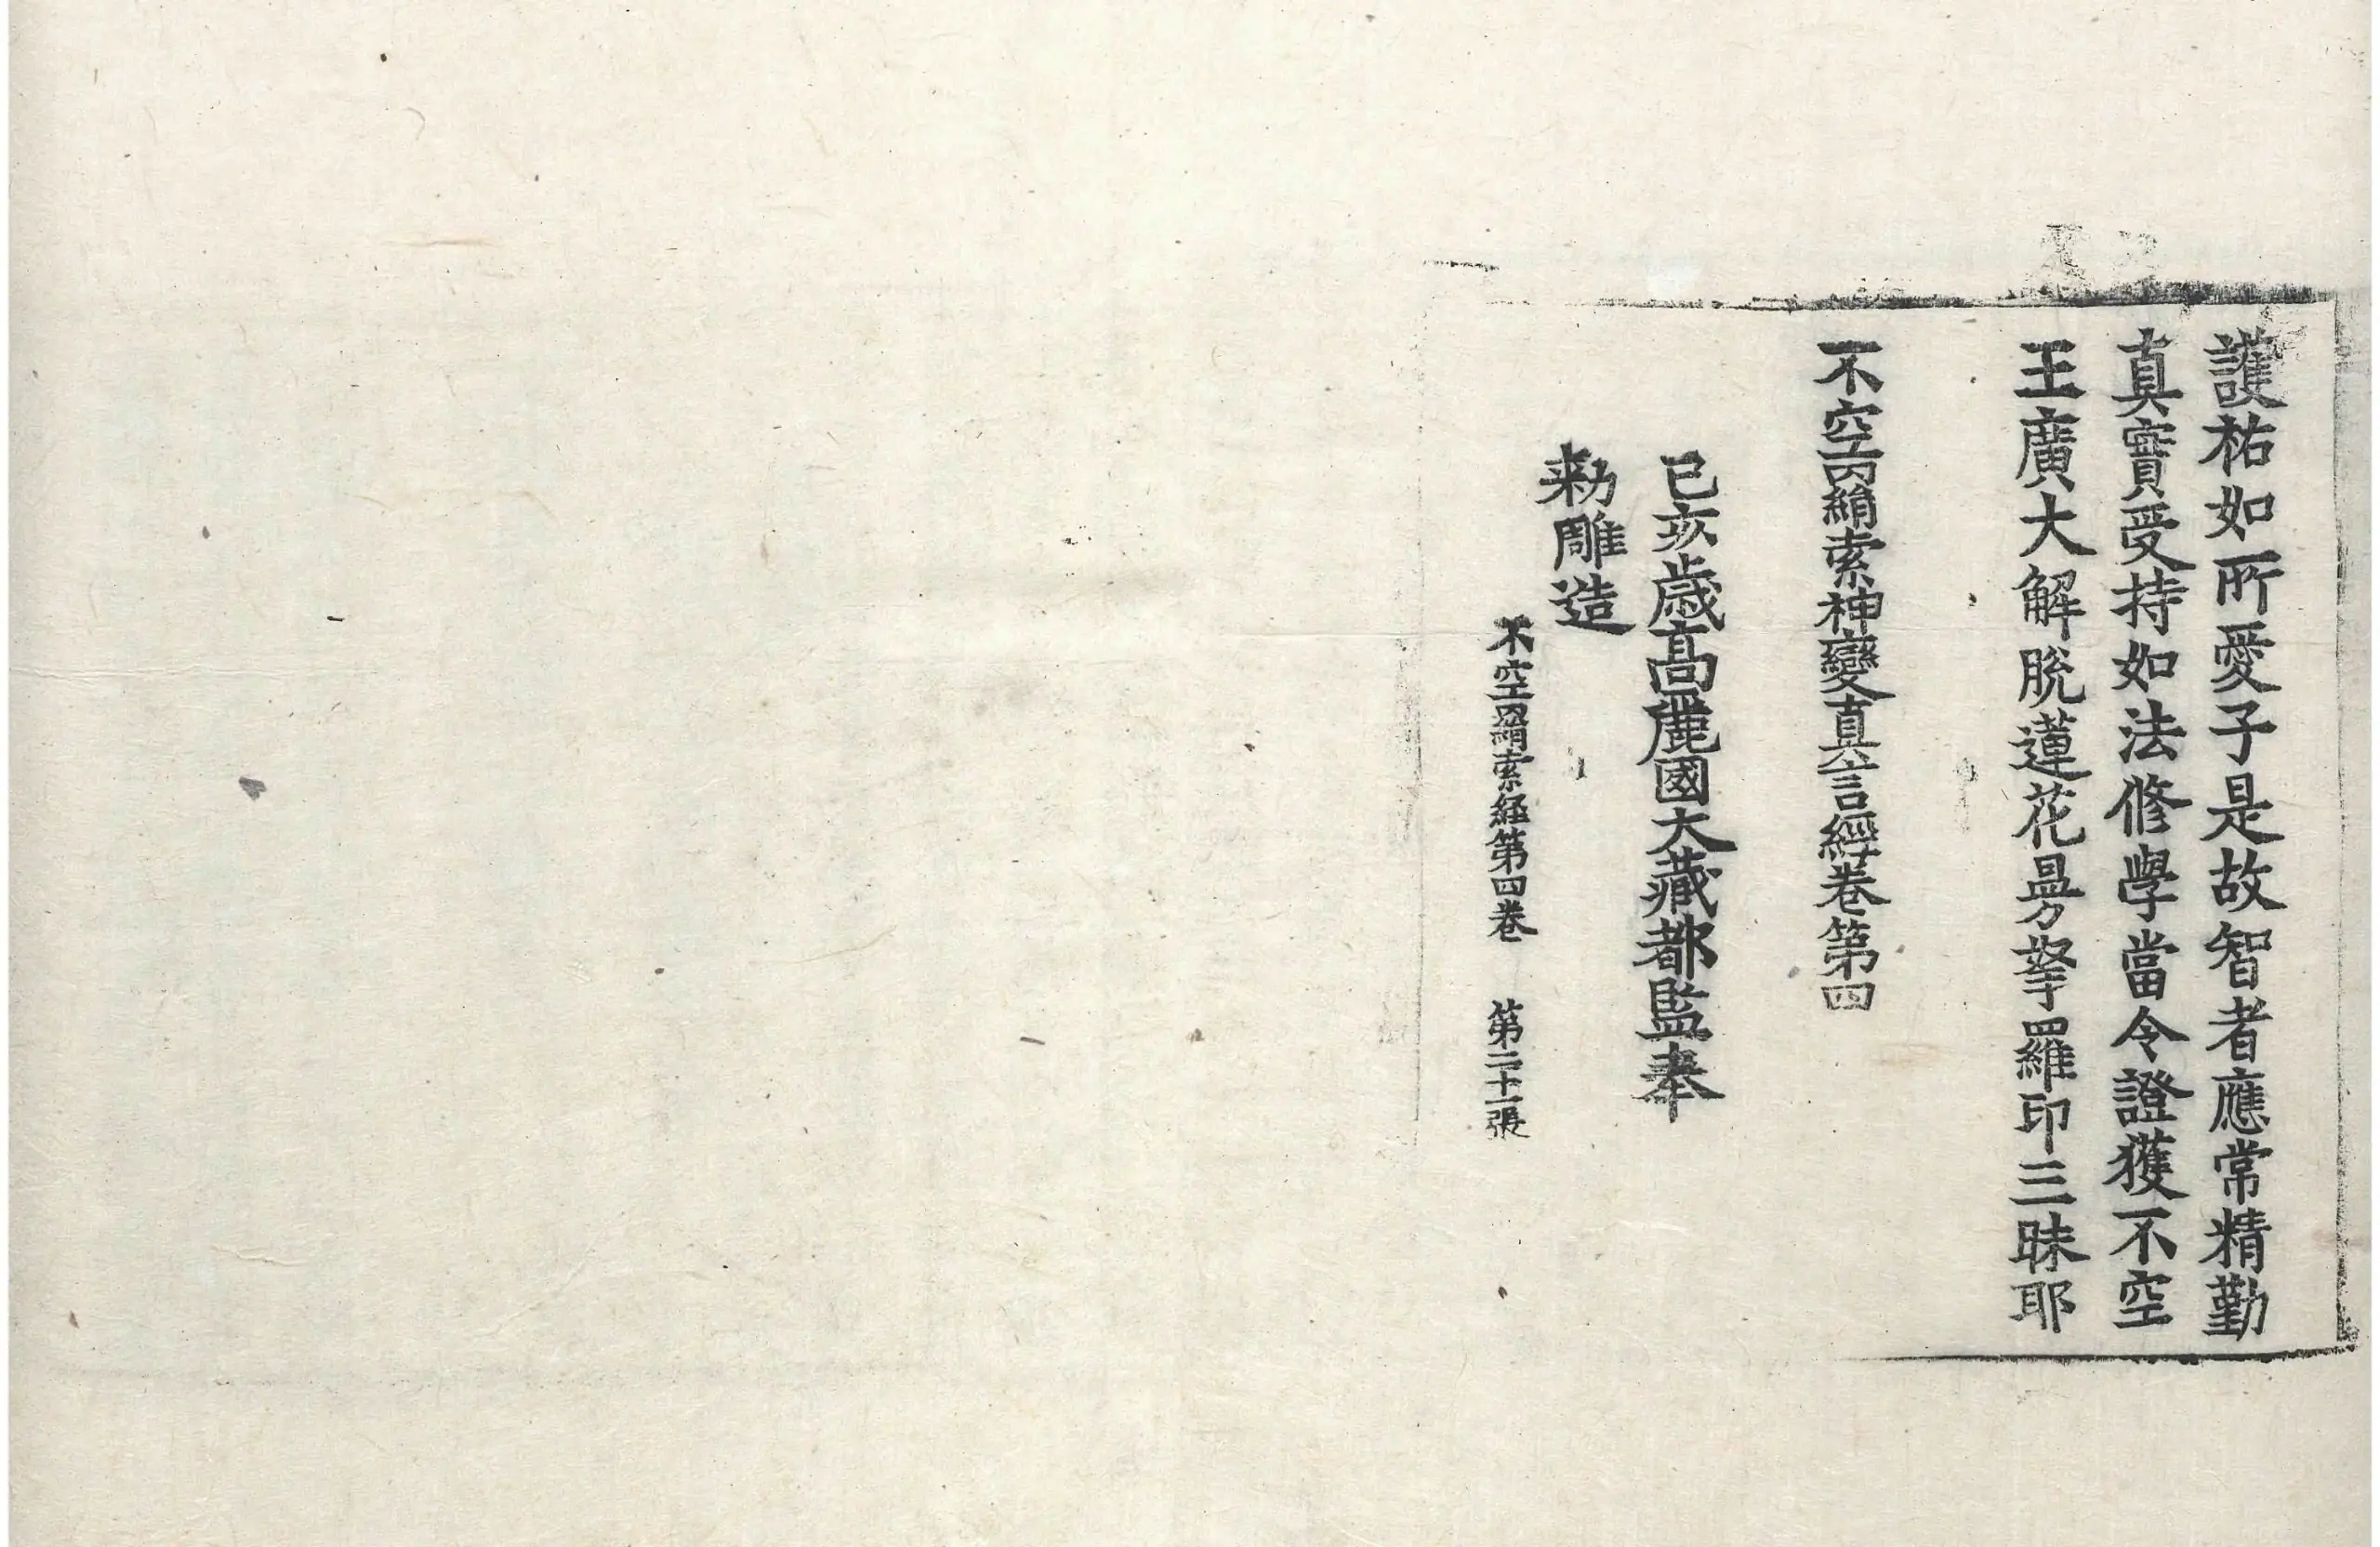 護祐如所愛子是故智者應常精勤
真實受持如法修學當令證獲不空
王廣大解脫蓮花曼拏羅印三昧耶
不空罥索神變真言經卷第四
己亥歲高麗國大藏都監奉
勑雕造
不空罥索経第四卷 第二十一張